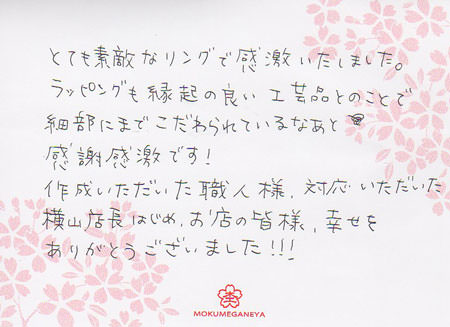 とても素敵なリングで感激いたしました。
ラッピングも縁起の良い工芸品とのことで
細部にまでこだわられているなあと
感謝感激です!
作成いただいた職人様、対応いただいた
横山店長はじめ、お店の皆様、幸せを
ありがとうございました!!!
MOKUMEGANEYA